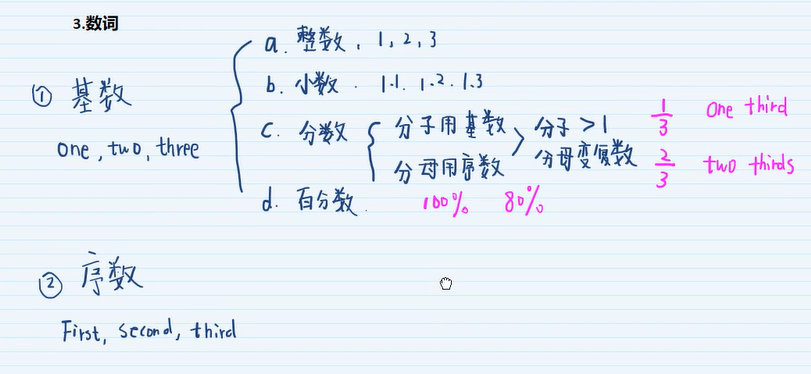 3.数词
① 基数
one, two, three
a. 整数. 1, 2, 3
b. 小数. 1.1. 1.2. 1.3
c. 分数 { 分子用基数 > 分子>1 1/3 one third
分母用序数 分母变复数 2/3 two thirds
d. 百分数. 100% 80%
② 序数
First, second, third